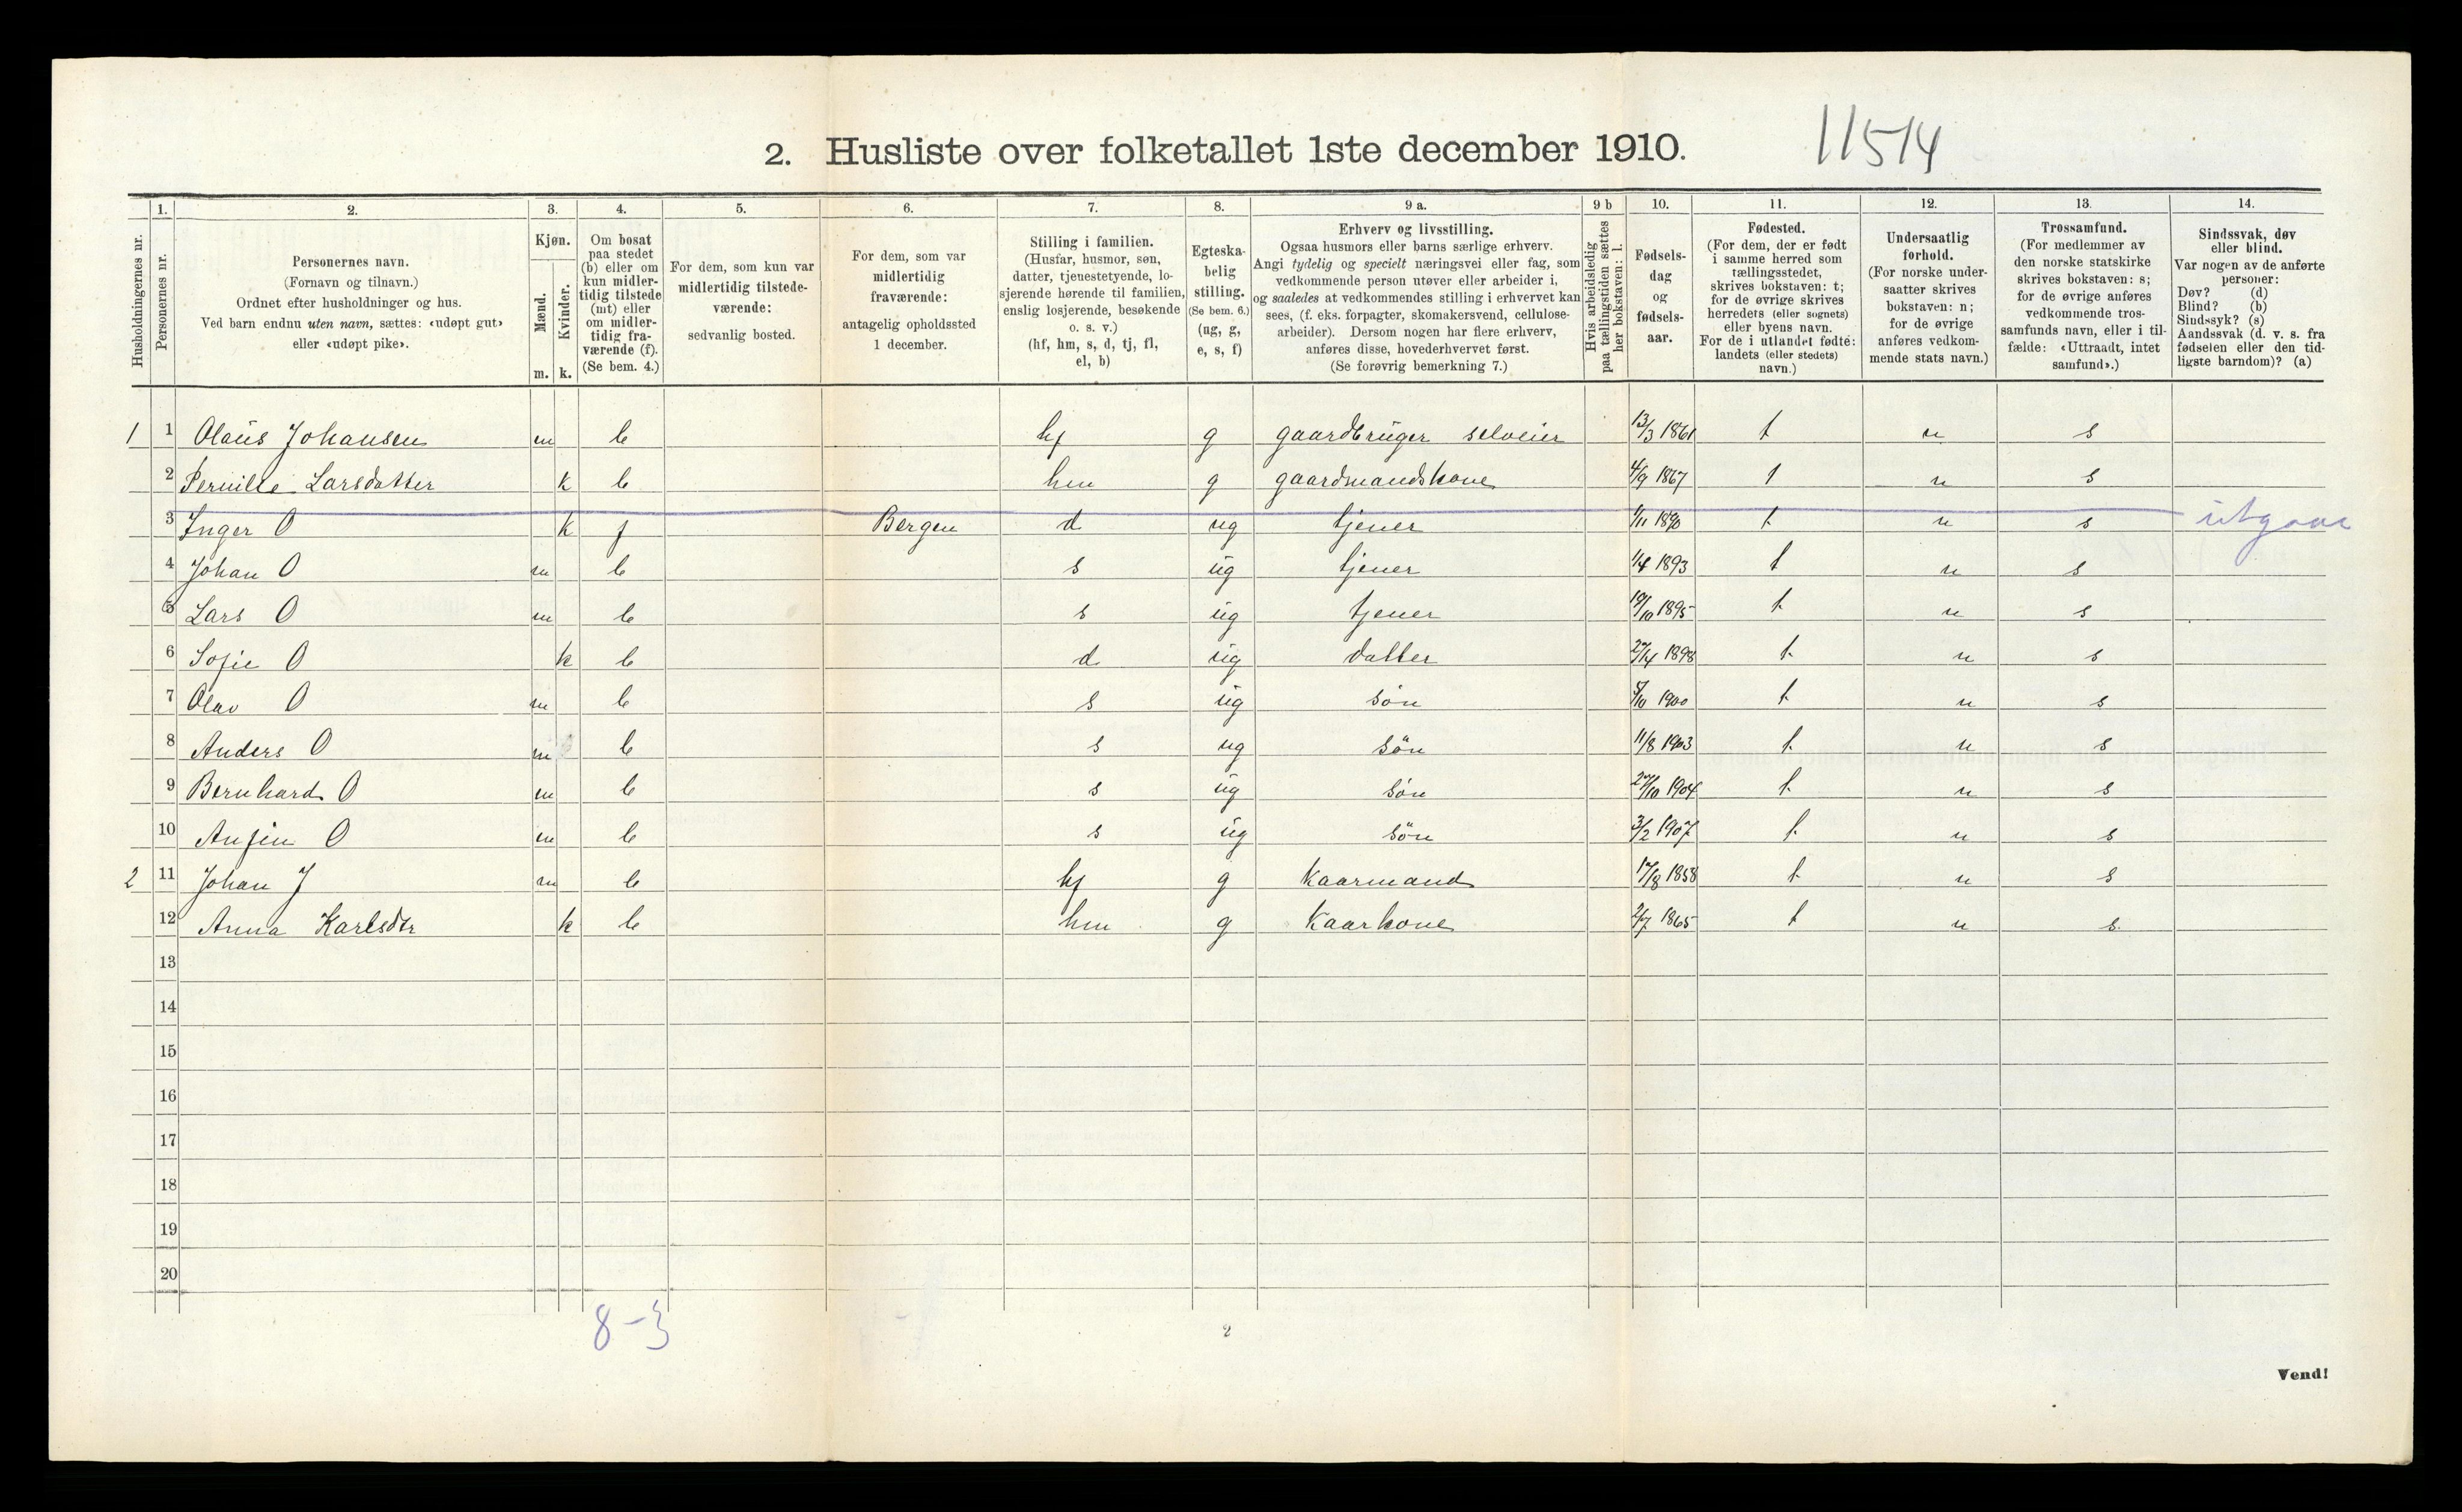 2. Husliste over folketallet 1ste december 1910.
11514
1. 2. 3. 4. 5. 6. 7. 8. 9 a. 9 b 10. 11. 12. 13. 14.
Husholdningernes nr.
Personernes nr.
Personernes navn.
(Fornavn og tilnavn.)
Ordnet efter husholdninger og hus.
Ved barn endnu uten navn, sættes: «udøpt gut»
eller «udøpt pike».
Kjøn.
Mænd.
Kvinder.
m. k.
Om bosat
paa stedet
(b) eller om
kun midler-
tidig tilstede
(mt) eller
om midler-
tidig fra-
værende (f).
(Se bem. 4.)
For dem, som kun var
midlertidig tilstede-
værende:
sedvanlig bosted.
For dem, som var
midlertidig
fraværende:
antagelig opholdssted
1 december.
Stilling i familien.
(Husfar, husmor, søn,
datter, tjenestetyende, lo-
sjerende hørende til familien,
enslig losjerende, besøkende
o. s. v.)
(hf, hm, s, d, tj, fl,
el, b)
Egteska-
belig
stilling.
(Se bem. 6.)
(ug, g,
e, s, f)
Erhverv og livsstilling.
Ogsaa husmors eller barns særlige erhverv.
Angi tydelig og specielt næringsvei eller fag, som
vedkommende person utøver eller arbeider i,
og saaledes at vedkommendes stilling i erhvervet kan
sees, (f. eks. forpagter, skomakersvend, cellulose-
arbeider). Dersom nogen har flere erhverv,
anføres disse, hovederhvervet først.
(Se forøvrig bemerkning 7.)
Hvis arbeidsledig
paa tællingstiden sættes
her bokstaven: l.
Fødsels-
dag
og
fødsels-
aar.
Fødested.
(For dem, der er født
i samme herred som
tællingsstedet,
skrives bokstaven: t;
for de øvrige skrives
herredets (eller sognets)
eller byens navn.
For de i utlandet fødte:
landets (eller stedets)
navn.)
Undersaatlig
forhold.
(For norske under-
saatter skrives
bokstaven: n;
for de øvrige
anføres vedkom-
mende stats navn.)
Trossamfund.
(For medlemmer av
den norske statskirke
skrives bokstaven: s;
for de øvrige anføres
vedkommende tros-
samfunds navn, eller i til-
fælde: «Uttraadt, intet
samfund».)
Sindssvak, døv
eller blind.
Var nogen av de anførte
personer:
Døv? (d)
Blind? (b)
Sindssyk? (s)
Aandssvak (d. v. s. fra
fødselen eller den tid-
ligste barndom)? (a)
1 1 Olaüs Johansen m b hf g gaardbrüger selveier 13/3 1861 t n s
2 Pernille Larsdatter k b hm g gaardmandskone 4/9 1867 t n s
3 Inger O k f Bergen d ug tjener 1/11 1890 t n s utgaar
4 Johan O m b s ug tjener 1/4 1893 t n s
5 Lars O m b s ug tjener 19/10 1895 t n s
6 Sofie O k b d ug datter 27/4 1898 t n s
7 Olav O m b s ug søn 5/10 1900 t n s
8 Anders O m b s ug sön 11/8 1903 t n s
9 Bernhard O m b s ug søn 27/10 1904 t n s
10 Anfin O m b s ug sön 3/2 1907 t n s
2 11 Johan J m b hf g Kaarmand 17/8 1858 t n s
12 Anna Karlsdtr k b hm g Kaarkone 2/7 1865 t n s
13
14
15
16
17
18
19
20
8-3
2
Vend!